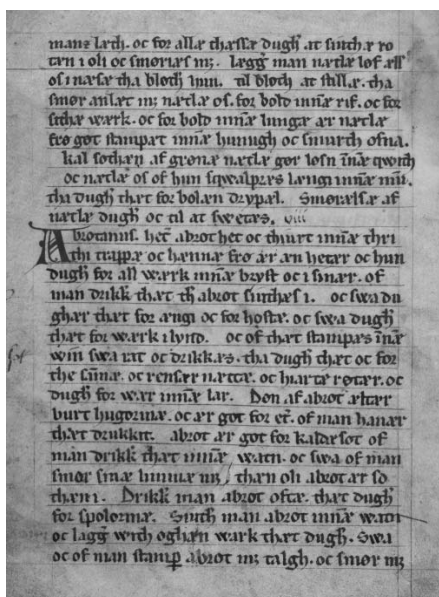 manz læth. oc for allæ thæssæ dugh at siuthæ ro
ten i oli oc smøriæs mz. Læggs man nætlæ løf æll
os i næsæ tha bloth hun. til bloth at stillæ. tha
smør anlæt mz nætlæ os. for bold innæ rif. oc for
sithæ wærk. oc for bold innæ lungæ ær nætlæ
frø got stampæt innæ hunugh oc smurth ofna.
kal sothæn af grønæ nætlæ gør løsn innæ qwith
oc nætlæ os of hun sqwalpæs længi innæ mun.
tha dugh thæt for bolæn drypæl. Smørælsæ af
nætlæ dugh oc til at swetæs. viii
Abrotanus. het abrot het oc thiurt innæ thri
thi trappæ oc hænnæ frø ær æn hetær oc hun
dugh for all wærk innæ bryst oc i sinær. of
man drikk thæt th abrot siuthæs i. oc swa du
ghær thæt for ængi oc for hostæ. oc swa dugh
thæt for wærk i lynd. oc of thæt stampæs innæ
win swa rat oc drikkæs. tha dugh thæt oc for
the sunæ. oc rensær nættæ. oc hiartæ røtær. oc
dugh for wær innæ lar. Don af abrot ælter
burt hugormæ. oc ær got for et. of man hanær
thæt drukkit. abrot ær got for kaldæsot of
man drikk thæt innæ watn. oc swa of man
smør sinæ limmæ mz thæn oli abrot ær so
thæn i. Drikk man abrot oftæ. thæt dugh
for spolormæ. Siuth man abrot innæ watn
oc lægg with øghæn wærk thæt dugh. Swa
oc of man stamp abrot mz talgh. oc smør mz